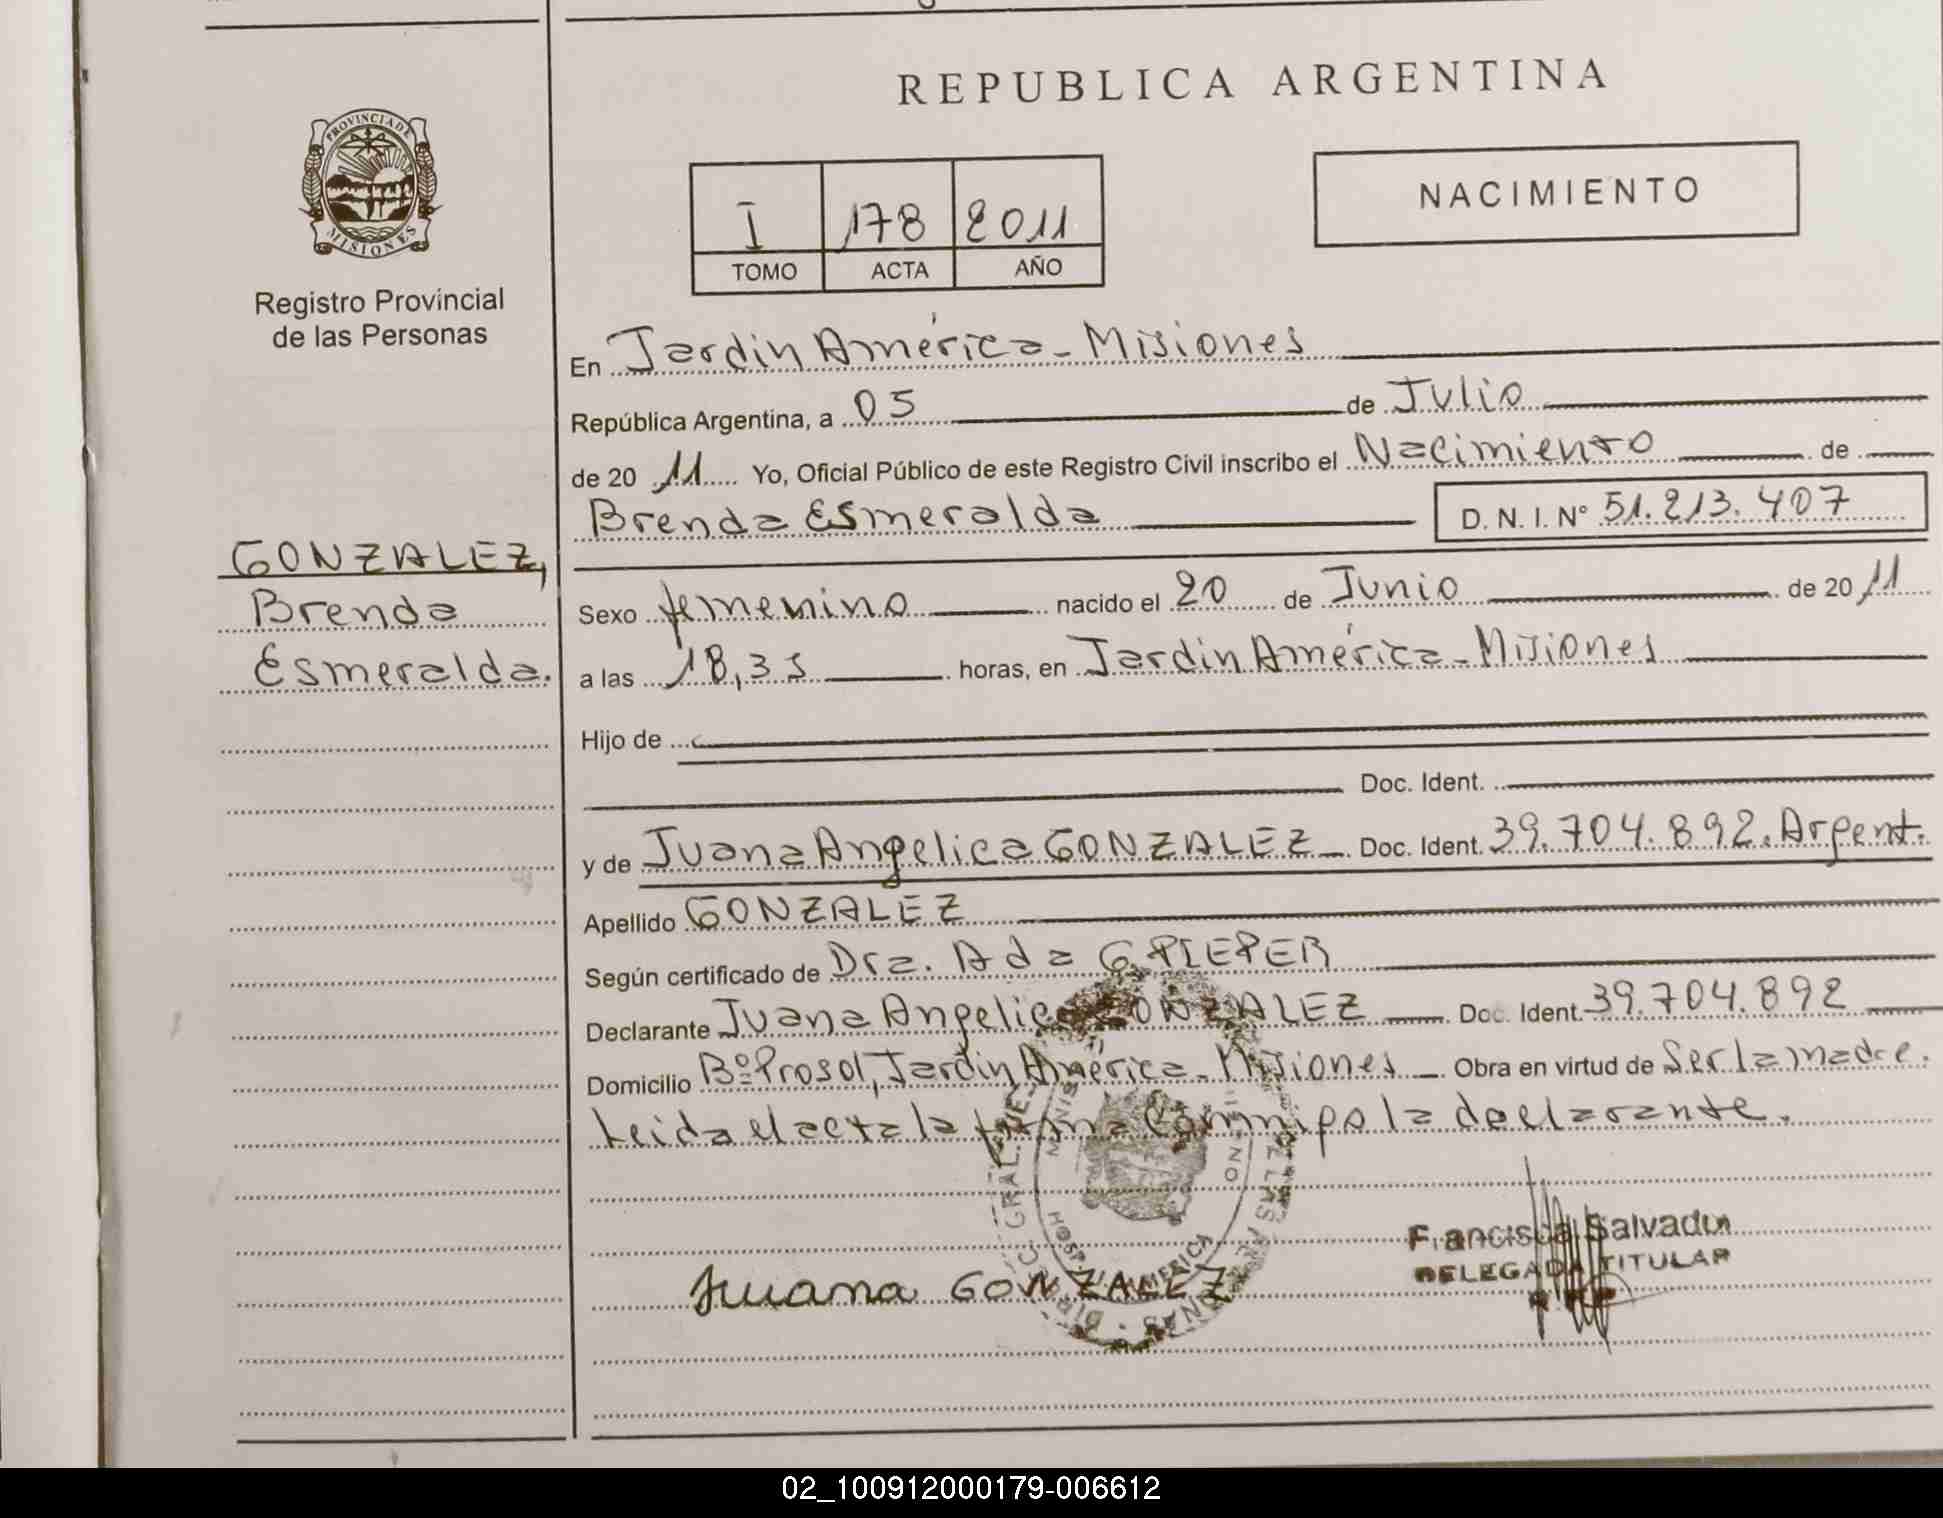 REPUBLICA ARGENTINA
PROVINCIA DE
MISIONES
Registro Provincial
de las Personas
I 178 2011
TOMO ACTA AÑO
NACIMIENTO
En Jardin América - Misiones
República Argentina, a 05 de Julio
de 20 11 Yo, Oficial Público de este Registro Civil inscribo el Nacimiento de
Brenda Esmeralda D. N. I. N° 51.213.407
GONZALEZ,
Brenda
Esmeralda.
Sexo femenino nacido el 20 de Junio de 20 11
a las 18,35 horas, en Jardin América - Misiones
Hijo de
Doc. Ident.
y de Juana Angelica GONZALEZ Doc. Ident. 39.704.892. Argent.
Apellido GONZALEZ
Según certificado de Dra. Ada G. PIEPER
Declarante Juana Angelica GONZALEZ Doc. Ident. 39.704.892
Domicilio Bº Prosol, Jardin América - Misiones Obra en virtud de Ser la madre.
Leida el acta la firma conmigo la declarante.
Juana GONZALEZ
Francisca Salvador
DELEGADA TITULAR
02_100912000179-006612